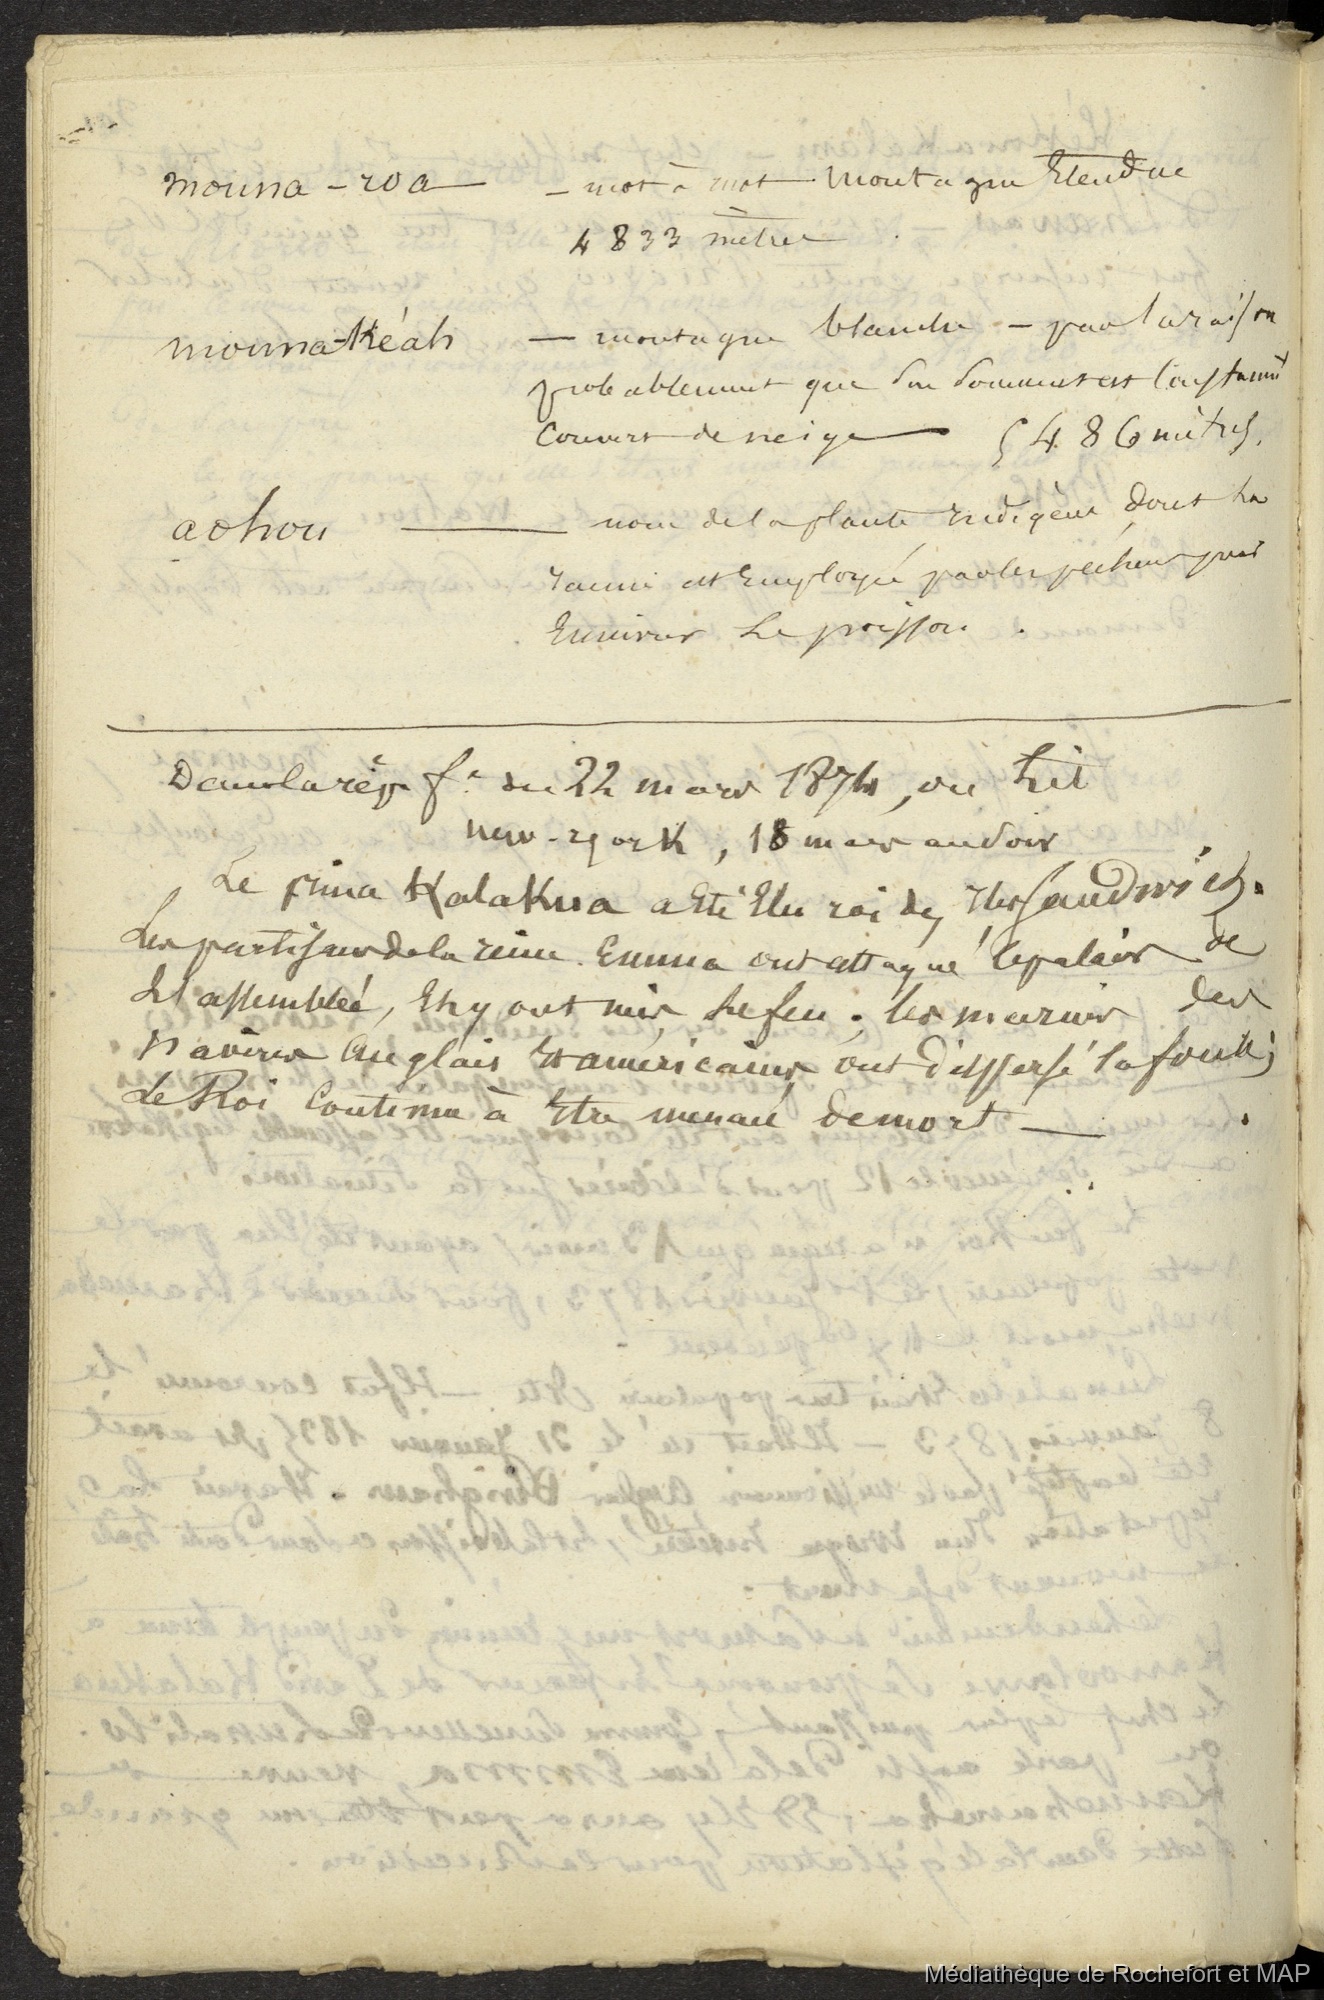 mouna-roa — mot à mot montagne Etendue
4833 mètres.
mouna-Kéah — montagne blanche — par la raison
probablement que son sommet est constamt
couvert de neige — 5486 mètres.
aohou — nom de la plante indigène dont la
racine est Employée par les pêcheurs pour
Enivrer le poisson.
Dans la rép. fse du 22 mars 1874, on lit
new-york, 18 mars au soir
Le prince Kalakua a Eté Elu roi des Iles Sandwich.
Les partisans de la reine Emma ont attaqué le palais de
l'assemblée, Et y ont mis le feu; les marins des
navires anglais Et américains ont dispersé la foule;
Le Roi Continue à Etre menacé de mort —
Médiathèque de Rochefort et MAP